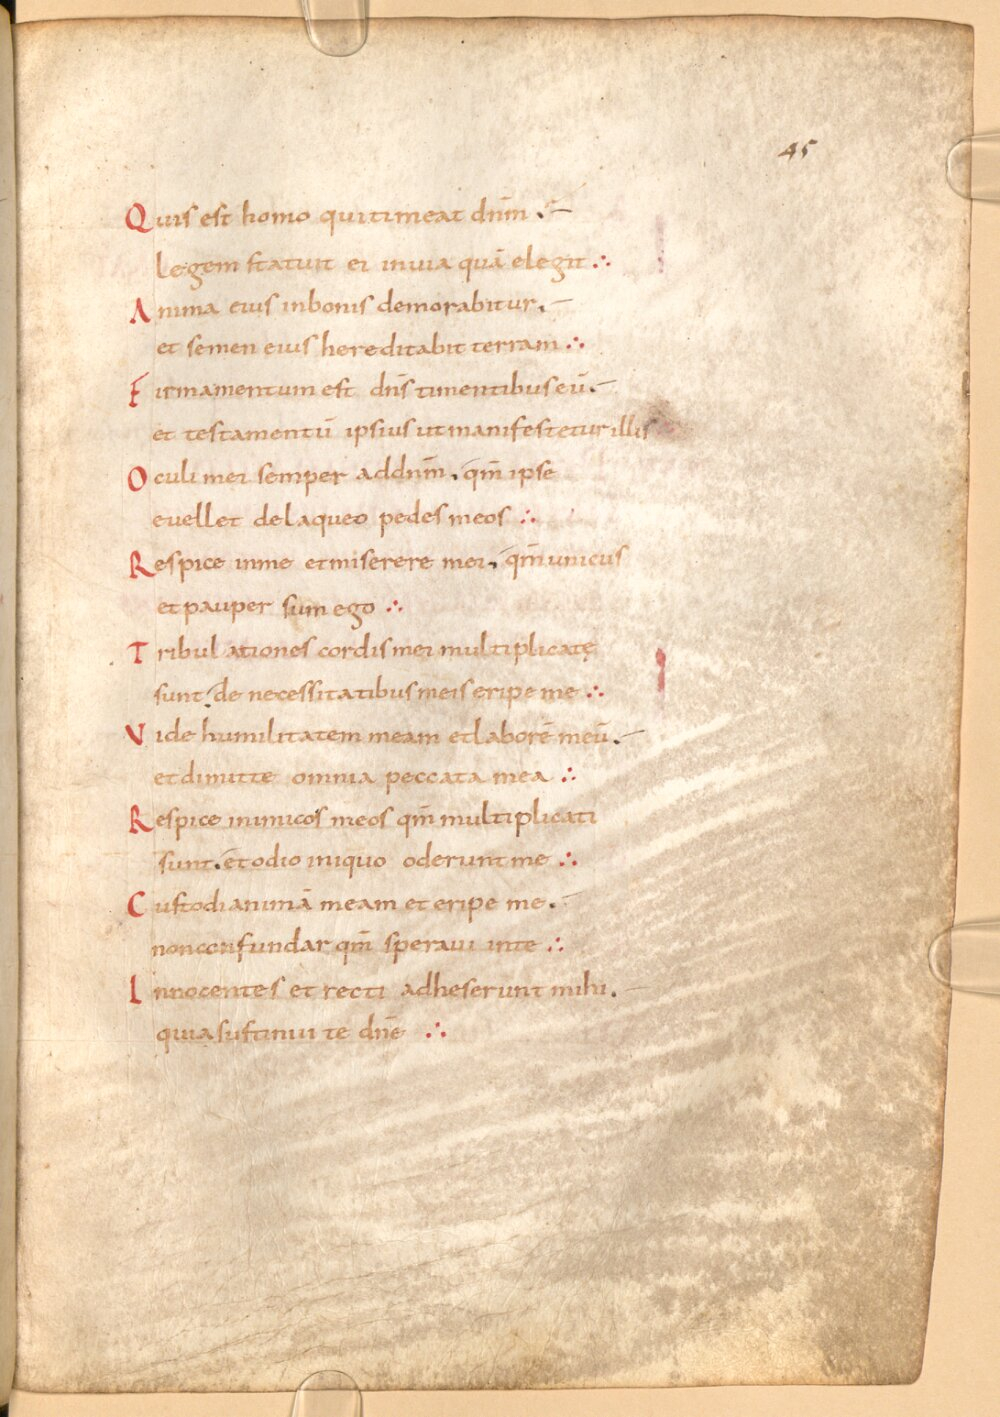 45
Quis est homo qui timeat dnm̄.
legem statuit ei in via quā elegit ∴
Anima eius in bonis demorabitur.
et semen eius hereditabit terram ∴
Firmamentum est dn̄s timentibus eū.
et testamentū ipsius ut manifestetur illis
Oculi mei semper ad dnm̄. qm̄ ipse
evellet de laqueo pedes meos ∴
Respice in me et miserere mei. qm̄ unicus
et pauper sum ego ∴
Tribulationes cordis mei multiplicatę
sunt. de necessitatibus meis eripe me ∴
Vide humilitatem meam et laborē meū.
et dimitte omnia peccata mea ∴
Respice inimicos meos qm̄ multiplicati
sunt. et odio iniquo oderunt me ∴
Custodi animā meam et eripe me.
non confundar qm̄ speravi in te ∴
Innocentes et recti adheserunt mihi.
quia sustinui te dn̄e ∴